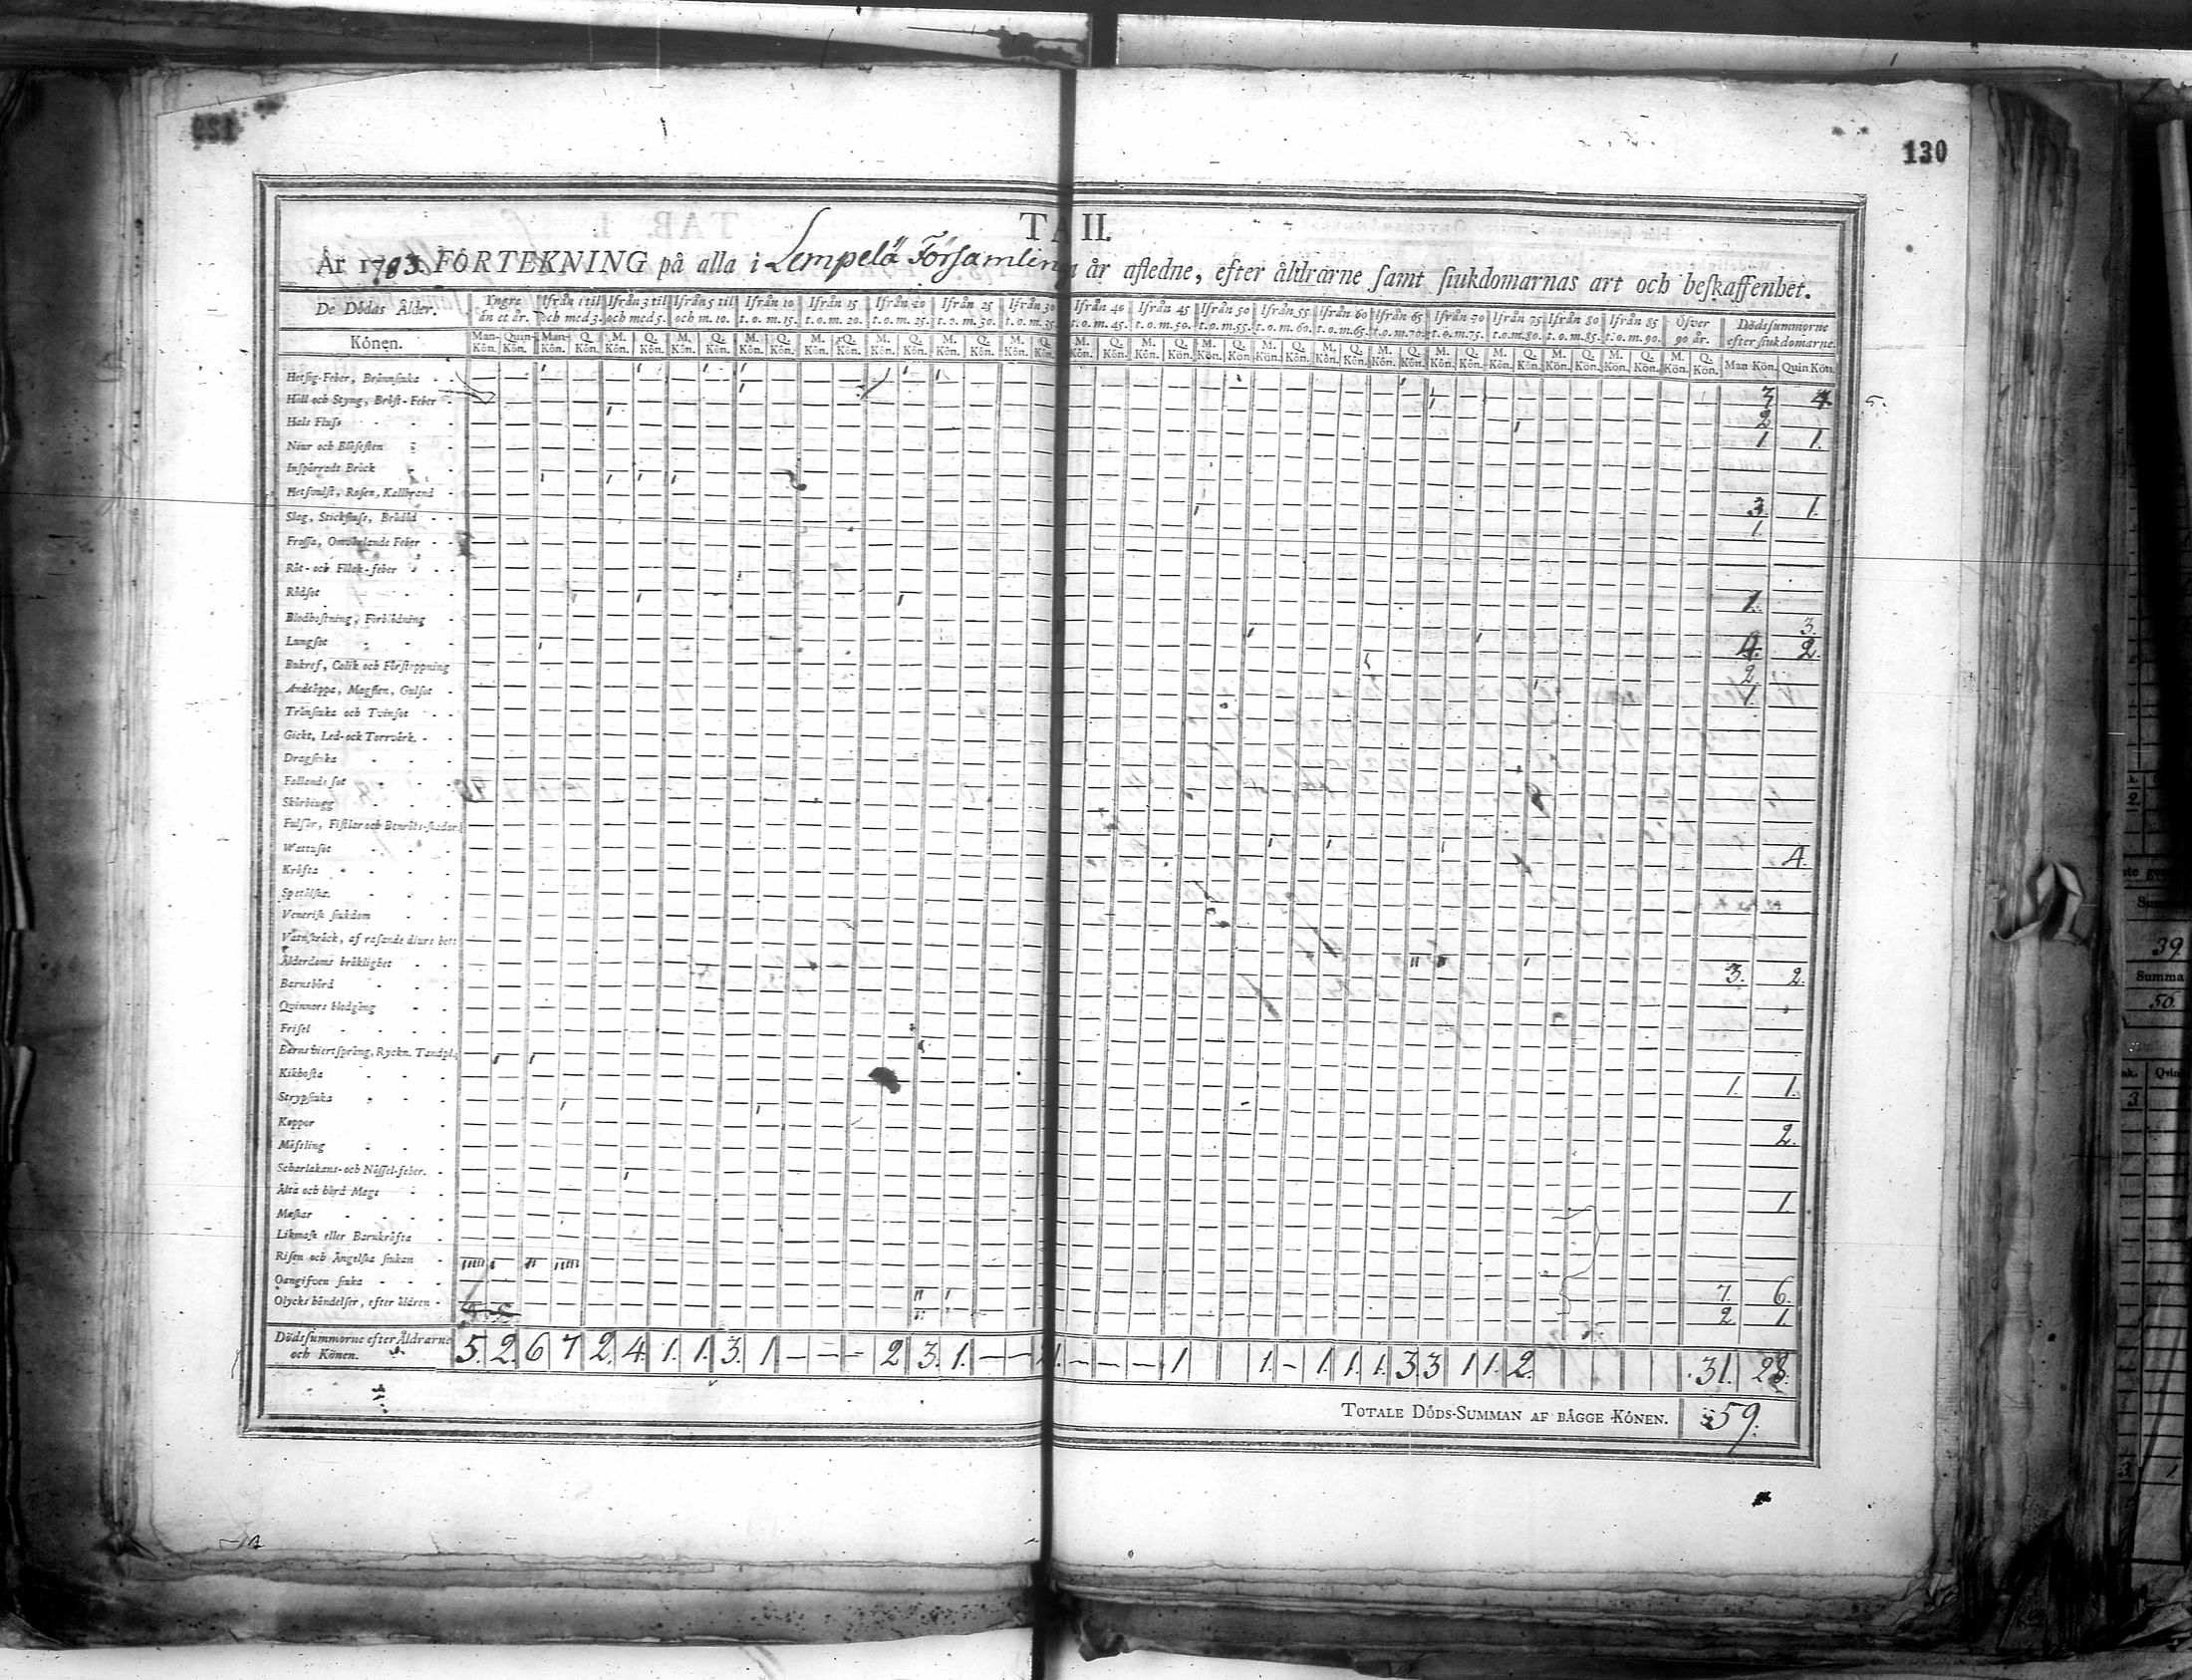 130
TA II.
År 1783. FÖRTEKNING på alla i Lempelä Församling år aflednе, efter åldrarne samt siukdomarnas art och beskaffenhet.
De Dödas Ålder. Yngre än et år. Ifrån 1 til och med 3. Ifrån 3 til och med 5. Ifrån 5 til och m. 10. Ifrån 10 t. o. m. 15. Ifrån 15 t. o. m. 20. Ifrån 20 t. o. m. 25. Ifrån 25 t. o. m. 30. Ifrån 30 t. o. m. 35. Ifrån 40 t. o. m. 45. Ifrån 45 t. o. m. 50. Ifrån 50 t. o. m. 55. Ifrån 55 t. o. m. 60. Ifrån 60 t. o. m. 65. Ifrån 65 t. o. m. 70. Ifrån 70 t. o. m. 75. Ifrån 75 t. o. m. 80. Ifrån 80 t. o. m. 85. Ifrån 85 t. o. m. 90. Öfver 90 år. Dödssummorne efter siukdomarne.
Könen. Man-Kön. Quin-Kön. Man-Kön. Q. Kön. M. Kön. Q. Kön. M. Kön. Q. Kön. M. Kön. Q. Kön. M. Kön. Q. Kön. M. Kön. Q. Kön. M. Kön. Q. Kön. M. Kön. Q. Kön. M. Kön. Q. Kön. M. Kön. Q. Kön. M. Kön. Q. Kön. M. Kön. Q. Kön. M. Kön. Q. Kön. M. Kön. Q. Kön. M. Kön. Q. Kön. M. Kön. Q. Kön. M. Kön. Q. Kön. M. Kön. Q. Kön. M. Kön. Q. Kön. Man Kön. Quin Kön.
Hetsig-Feber, Brännsiuka 3 4.
Håll och Styng, Bröst-Feber 2
Hals Fluss 1 1.
Niur och Blåsesten
Inspärradt Bråck
Hetsvulst, Rosen, Kallbrand 3. 1.
Slag, Stickfluss, Brådöd 1.
Frossa, Omväxlande Feber
Röt- och Fläck-feber
Rödsot 1.
Blodhostning, Förblödning 3.
Lungsot 4. 2.
Bukref, Colik och Förstoppning 2.
Andtäppa, Magsten, Gulsot 1.
Trånsiuka och Tvinsot
Gickt, Led-och Torrvärk.
Dragsiuka
Fallande sot
Skörbiugg
Fulsår, Fistlar och Benröts-skador
Wattusot 4.
Kräfta
Spetälska.
Venerisk siukdom
Vatnskräck, af rasande diurs bett
Ålderdoms bräklighet 3. 2.
Barnsbörd
Qvinnors blodgång
Frisel
Barns hiertsprång, Ryckn. Tandpl.
Kikhosta 1. 1.
Strypsiuka
Koppor 2.
Mässling
Scharlakans- och Nässel-feber.
Älta och hård Mage 1
Maskar
Likmask eller Barnkräfta
Risen och Ängelska siukan
Oangifven siuka 7. 6.
Olycks händelser, efter åldren 2 1.
Dödssummorne efter Åldrarne och Könen. 5. 2. 6 7 2. 4. 1. 1. 3. 1 – – – 2 3. 1. – – 1. – – – 1 1. – 1 1. 1. 3 3 1 1. 2. 31. 28.
TOTALE DÖDS-SUMMAN AF BÄGGE KÖNEN. 59.